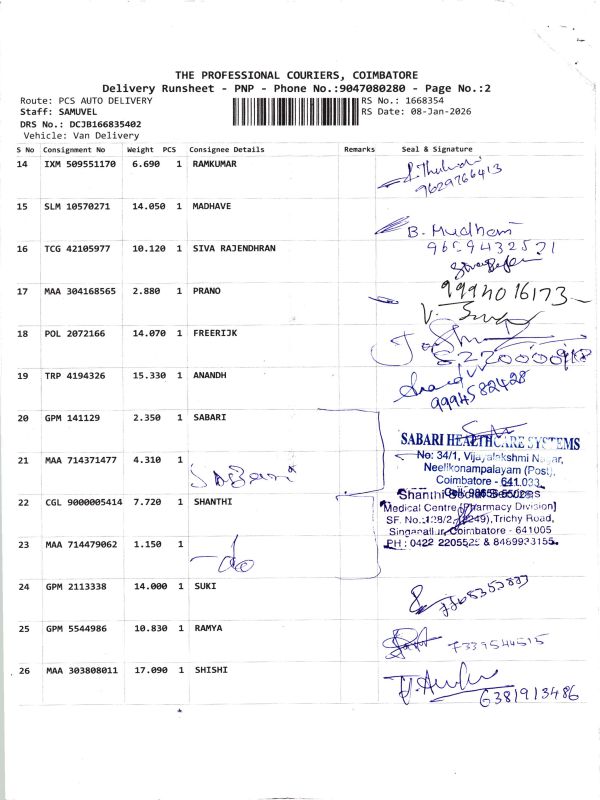 THE PROFESSIONAL COURIERS, COIMBATORE
Delivery Runsheet - PNP - Phone No.:9047080280 - Page No.:2
Route: PCS AUTO DELIVERY RS No.: 1668354
Staff: SAMUVEL RS Date: 08-Jan-2026
DRS No.: DCJB166835402
Vehicle: Van Delivery
S No Consignment No Weight PCS Consignee Details Remarks Seal & Signature
14 IXM 509551170 6.690 1 RAMKUMAR
9629766413
15 SLM 10570271 14.050 1 MADHAVE
B. Mudham
9659432521
16 TCG 42105977 10.120 1 SIVA RAJENDHRAN
17 MAA 304168565 2.880 1 PRANO 9994016173
18 POL 2072166 14.070 1 FREERIJK
19 TRP 4194326 15.330 1 ANANDH
9994582428
20 GPM 141129 2.350 1 SABARI
SABARI HEALTHCARE SYSTEMS
No: 34/1, Vijayalakshmi Nagar,
Neelikonampalayam (Post),
Coimbatore - 641.033.
21 MAA 714371477 4.310 1
Sabari
22 CGL 9000005414 7.720 1 SHANTHI
Shanthi Social Services
Medical Centre [Pharmacy Division]
Trichy Road,
Singanallur, Coimbatore - 641005
PH : 0422 2205525 & 8489933155
23 MAA 714479062 1.150 1
-do
24 GPM 2113338 14.000 1 SUKI
25 GPM 5544986 10.830 1 RAMYA
7339544515
26 MAA 303808011 17.090 1 SHISHI
6381913486